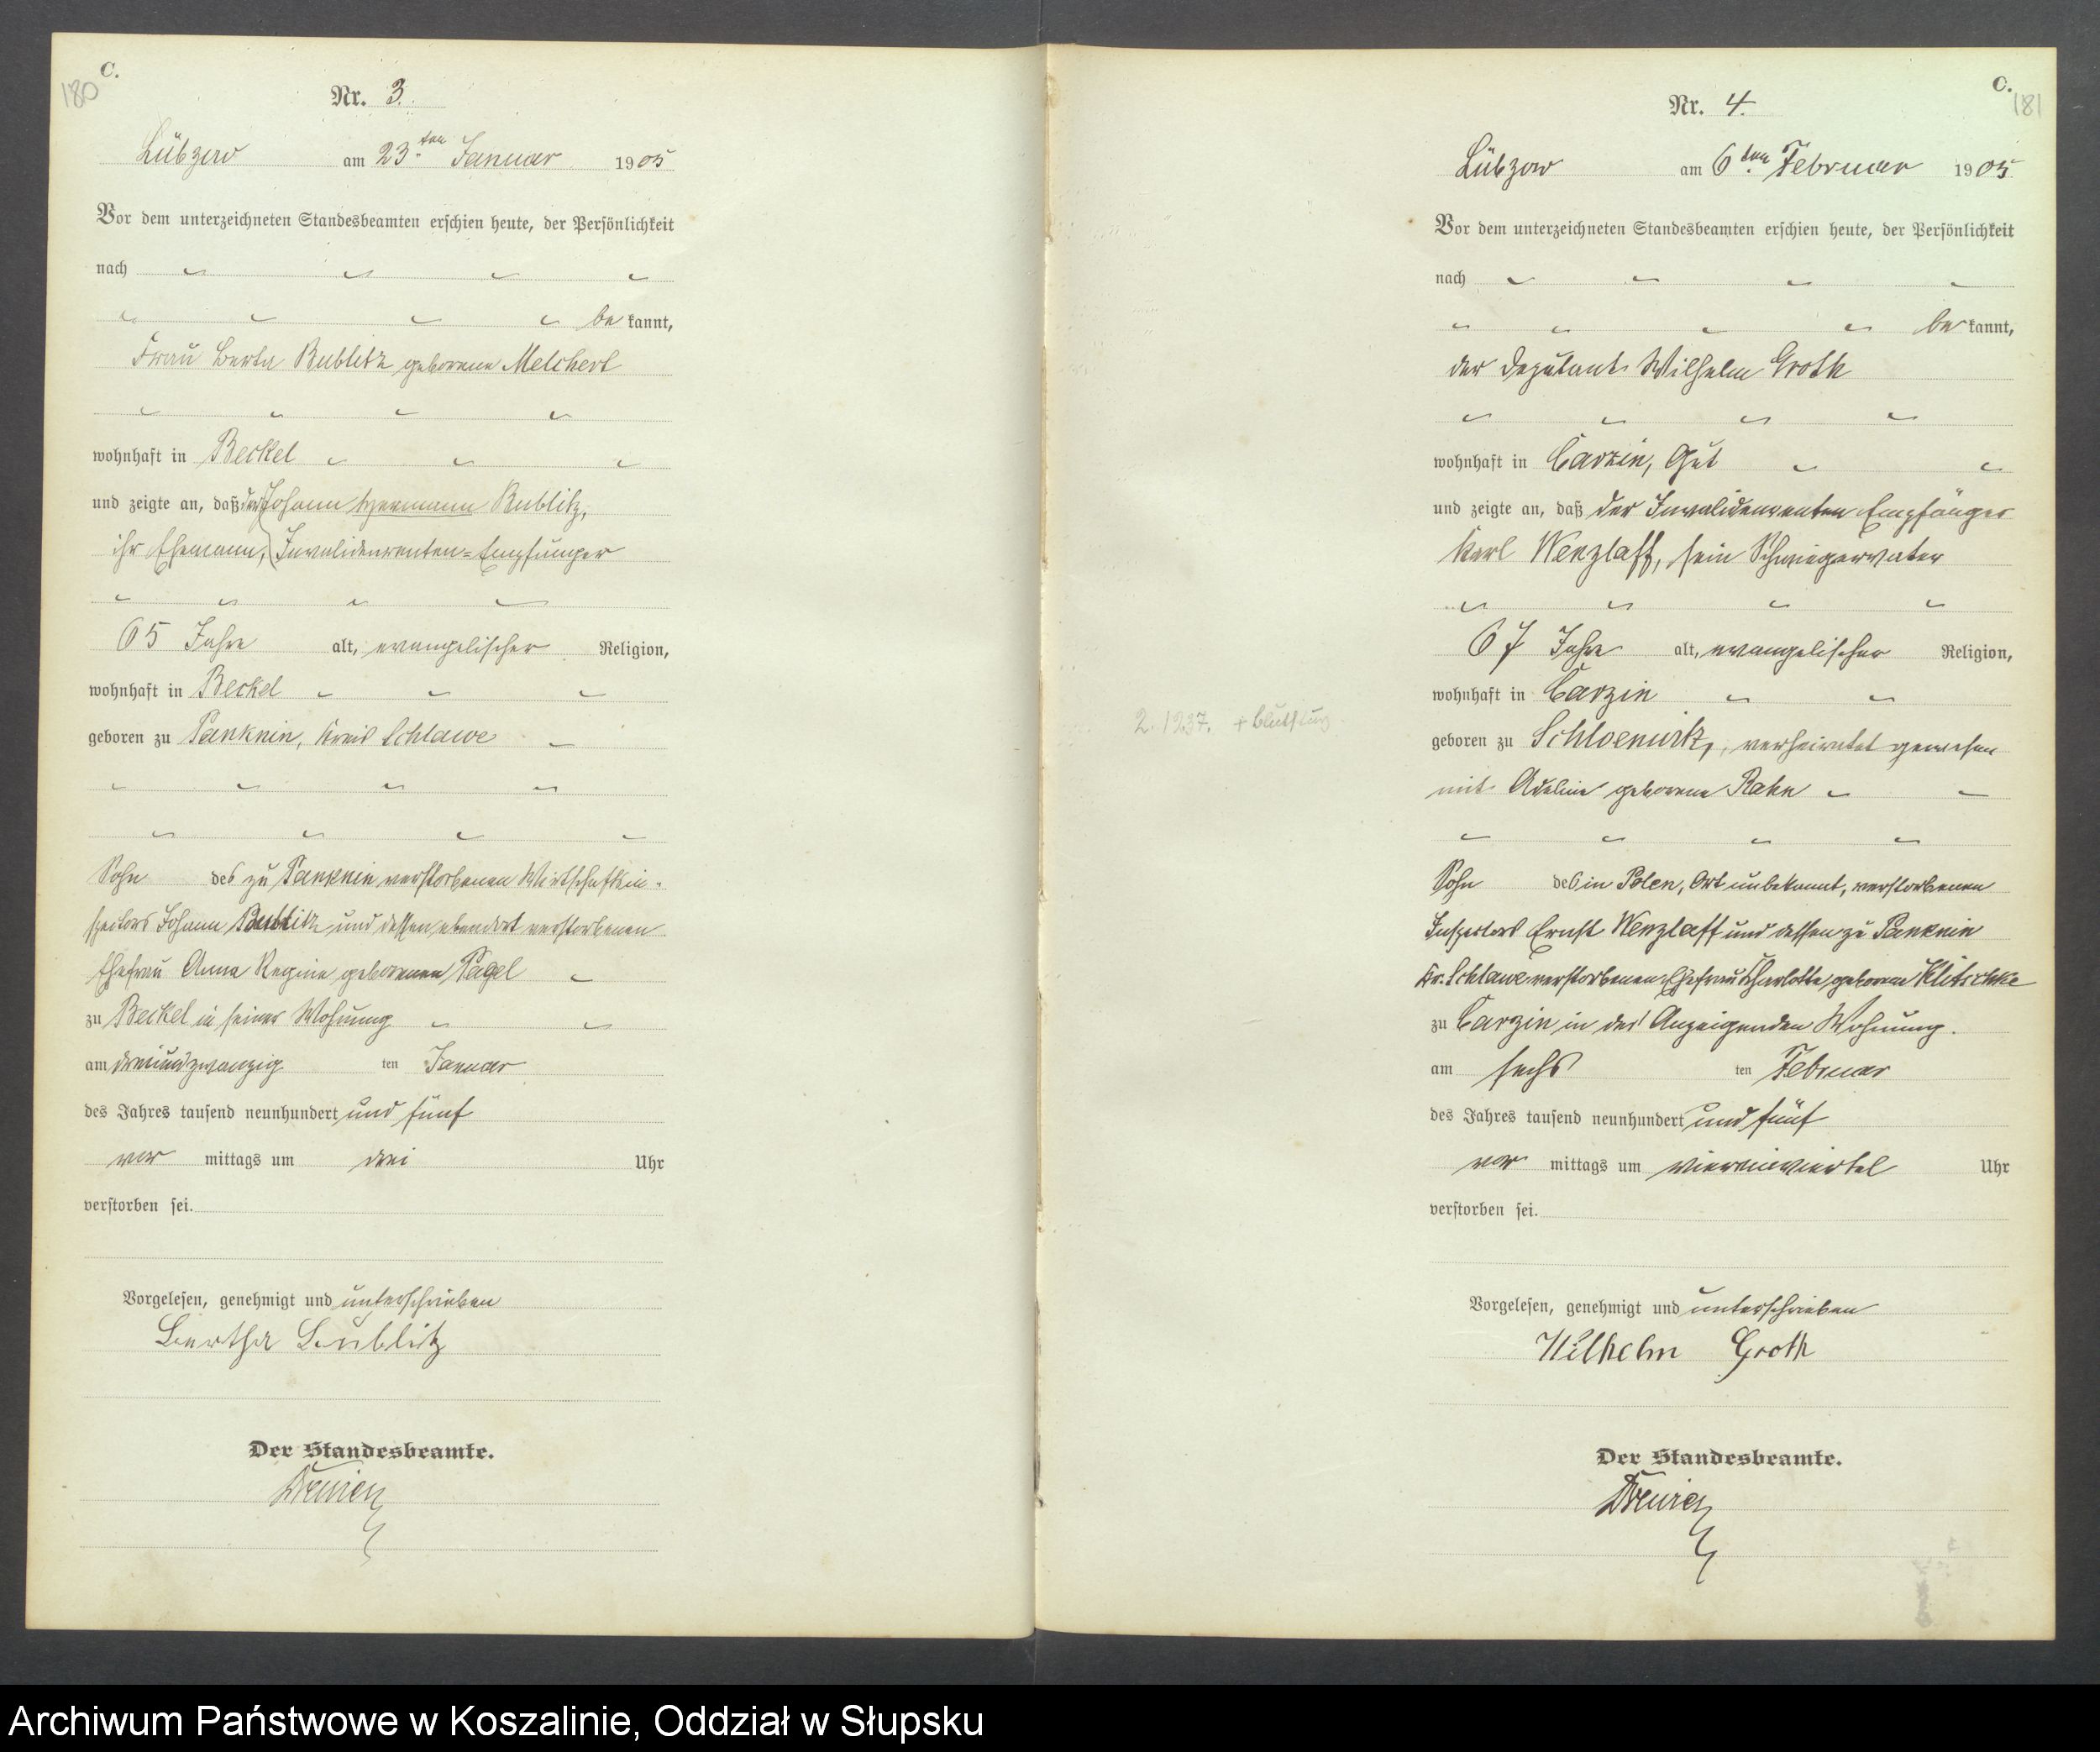 C.
180
Nr. 3.
Lübzow am 23ten Januar 1905
Vor dem unterzeichneten Standesbeamten erschien heute, der Persönlichkeit
nach
be kannt,
Frau Berta Bublitz geborene Melchert
wohnhaft in Beckel
und zeigte an, daß der Johann Hermann Bublitz,
ihr Ehemann, Invalidenrenten-Empfänger
65 Jahre alt, evangelischer Religion,
wohnhaft in Beckel
geboren zu Panknin, Kreis Schlawe
Sohn des zu Panknin verstorbenen Wirtschaftsin-
spectors Johann Bublitz und dessen ebendort verstorbenen
Ehefrau Anna Regine geborenen Pagel
zu Beckel in seiner Wohnung
am dreiundzwanzig ten Januar
des Jahres tausend neunhundert und fünf
vor mittags um drei Uhr
verstorben sei.
Vorgelesen, genehmigt und unterschrieben
Bertha Bublitz
Der Standesbeamte.
C.
181
Nr. 4.
Lübzow am 6ten Februar 1905
Vor dem unterzeichneten Standesbeamten erschien heute, der Persönlichkeit
nach
be kannt,
der Deputant Wilhelm Groth
wohnhaft in Carzin, Gut
und zeigte an, daß der Invalidenrenten Empfänger
Karl Wenzlaff, sein Schwiegervater
67 Jahre alt, evangelischer Religion,
wohnhaft in Carzin
2. 1237. + Blutsturz
geboren zu Schloenwitz, verheiratet gewesen
mit Adeline geborene Rahn
Sohn des in Polen, Ort unbekannt, verstorbenen
Inspectors Ernst Wenzlaff und dessen zu Panknin
Kr. Schlawe verstorbenen Ehefrau Charlotte geborene Klitschke
zu Carzin in des Anzeigenden Wohnung.
am sechs ten Februar
des Jahres tausend neunhundert und fünf
vor mittags um viereinviertel Uhr
verstorben sei.
Vorgelesen, genehmigt und unterschrieben
Wilhelm Groth
Der Standesbeamte.
Archiwum Państwowe w Koszalinie, Oddział w Słupsku